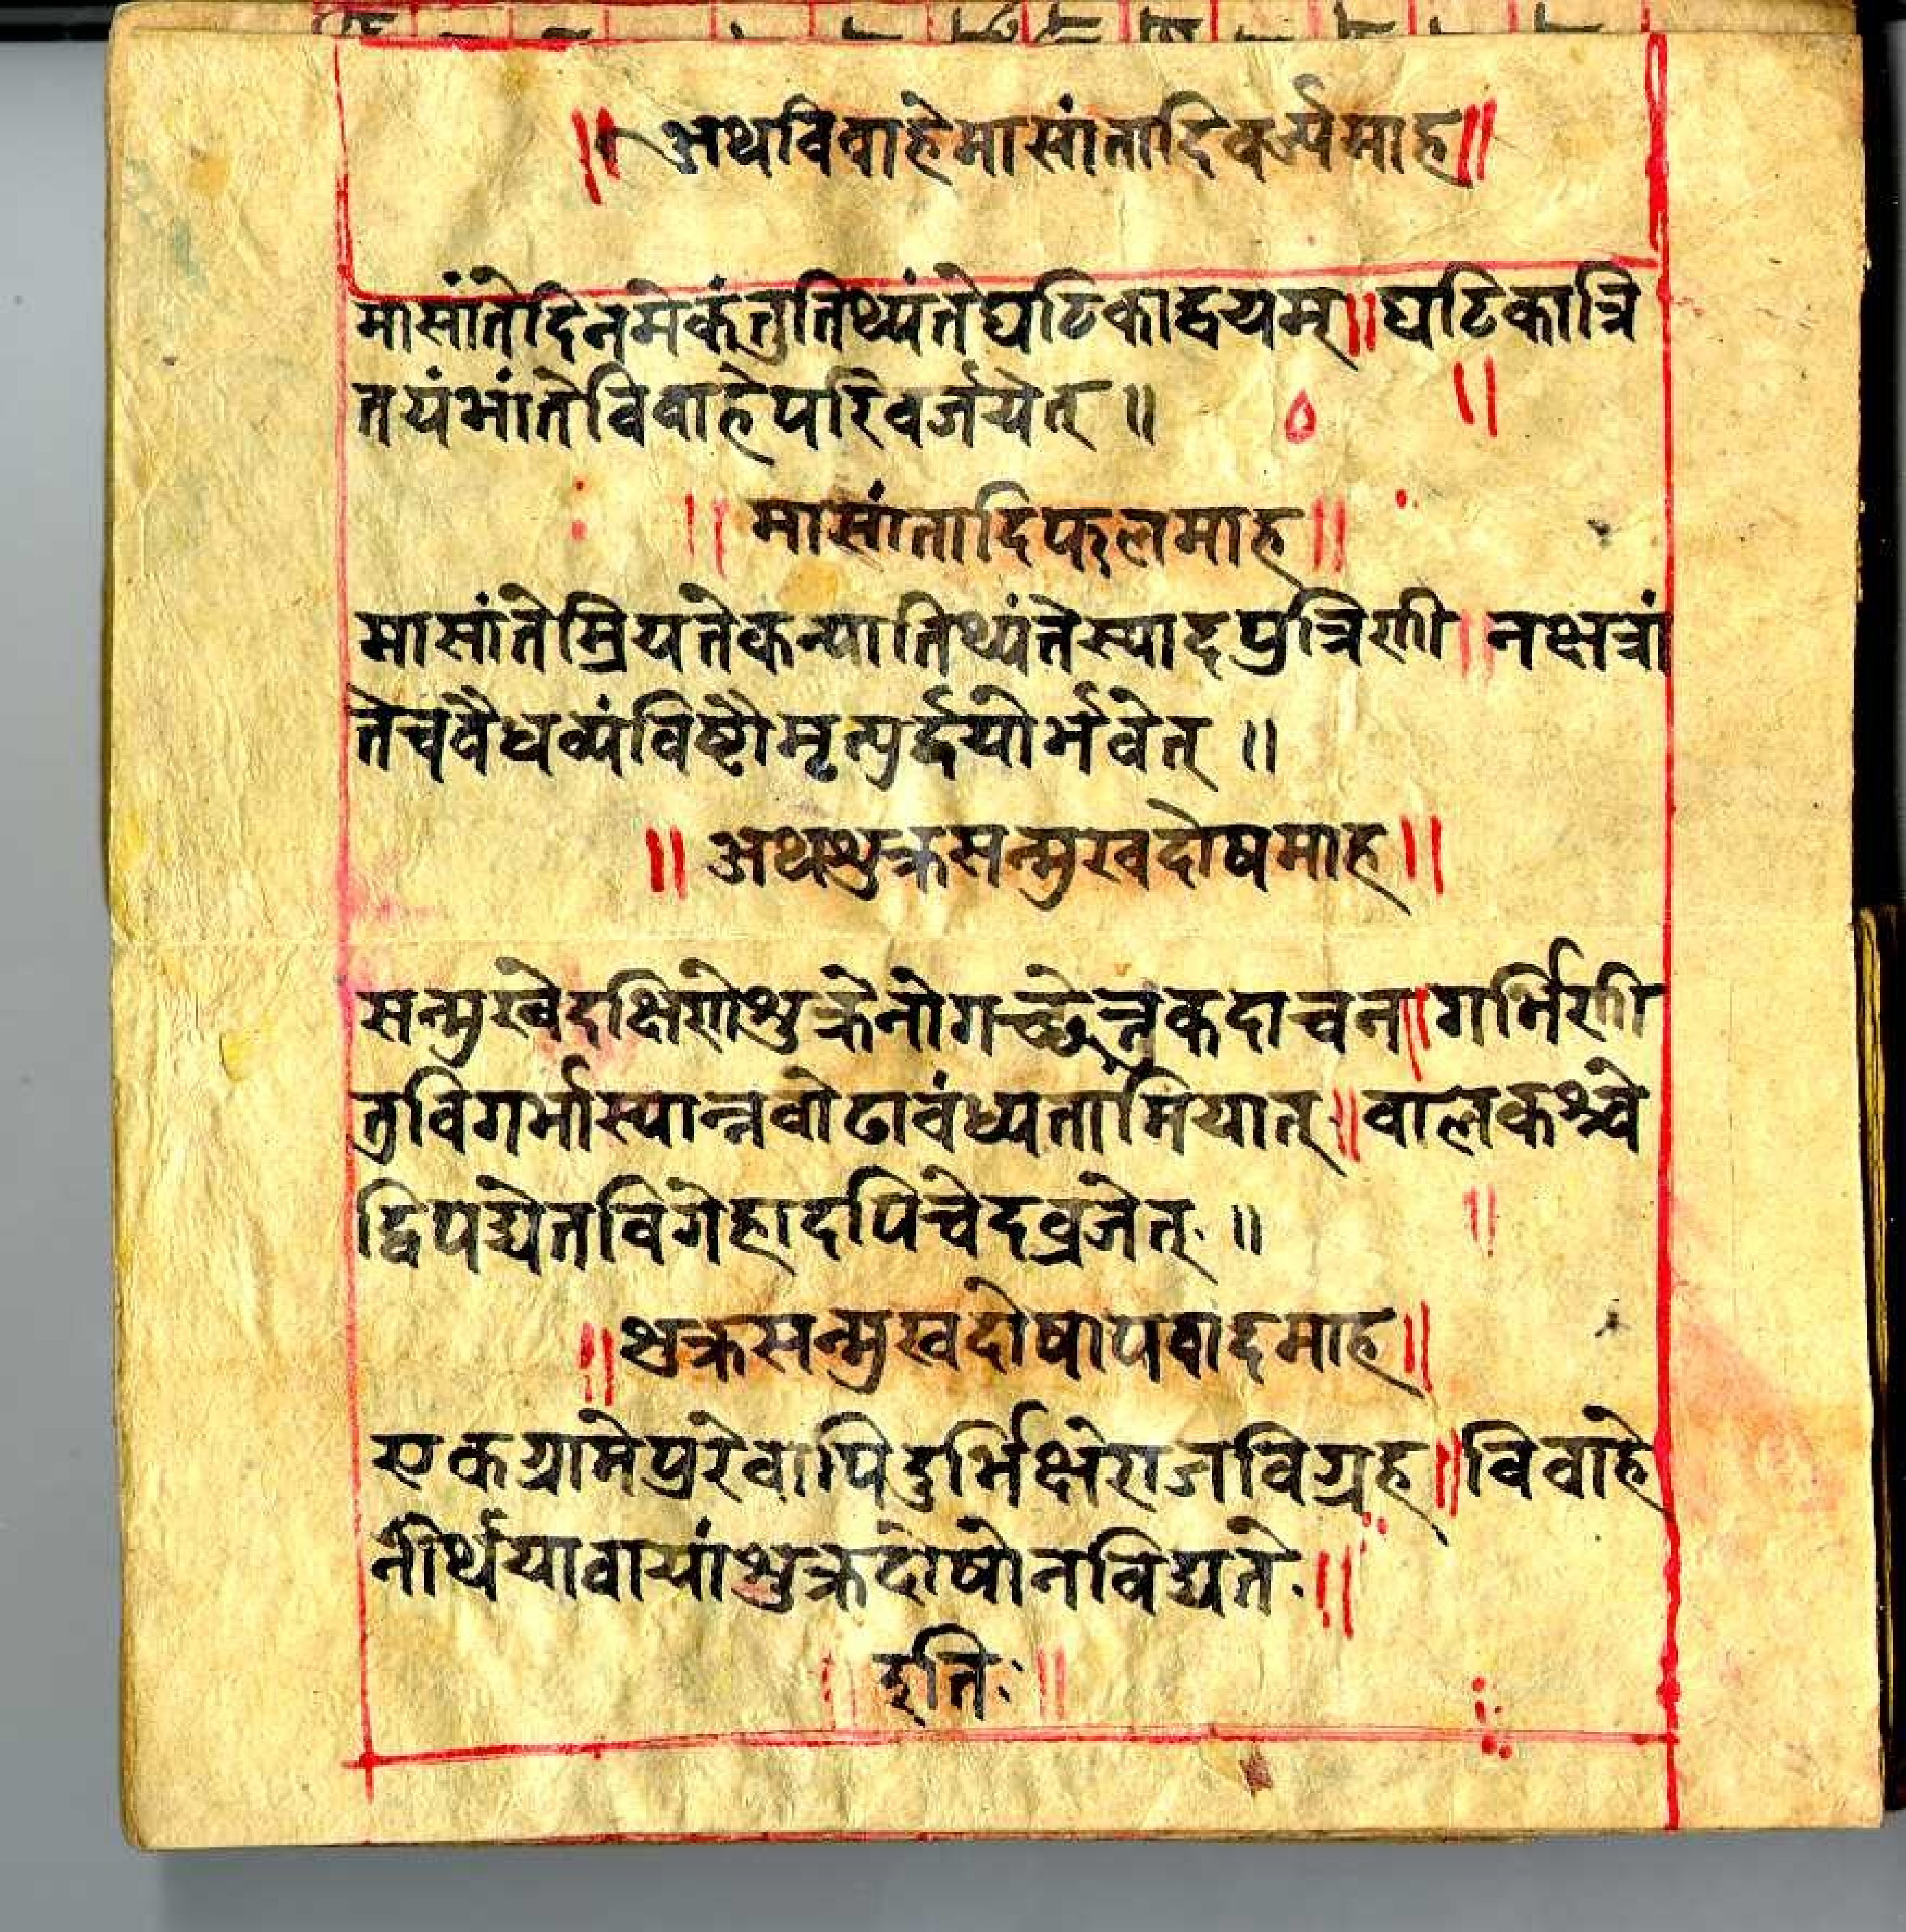 ॥ अथविवाहेमासांतादिवर्ज्यमाह॥
मासांतेदिनमेकंतुतिथ्यंतेघटिकाद्वयम्॥घटिकात्रि
तयंभांतेविवाहेपरिवर्जयेत् ॥ ० ॥
॥ मासांतादिफलमाह॥
मासांतेम्रियतेकन्यातिथ्यंतेस्यादपुत्रिणी ॥ नक्षत्रां
तेचवैधव्यंविष्टौमृत्युर्द्वयोर्भवेत् ॥
॥ अथशुक्रसन्मुखदोषमाह॥
सन्मुखेदक्षिणेशुक्रेनोगच्छेत्तकदाचन॥गर्भिणी
तुविगर्भास्यान्नवोढावंध्यतामियात्॥वालकश्चे
द्विपद्येतविगेहादपिचेदव्रजेत् ॥ ॥
॥शुक्रसन्मुखदोषापवादमाह॥
एकग्रामेपुरेवापिदुर्भिक्षेराजविग्रह॥विवाहे
तीर्थयावायांशुक्रदोषोनविद्यते॥
॥ इति ॥